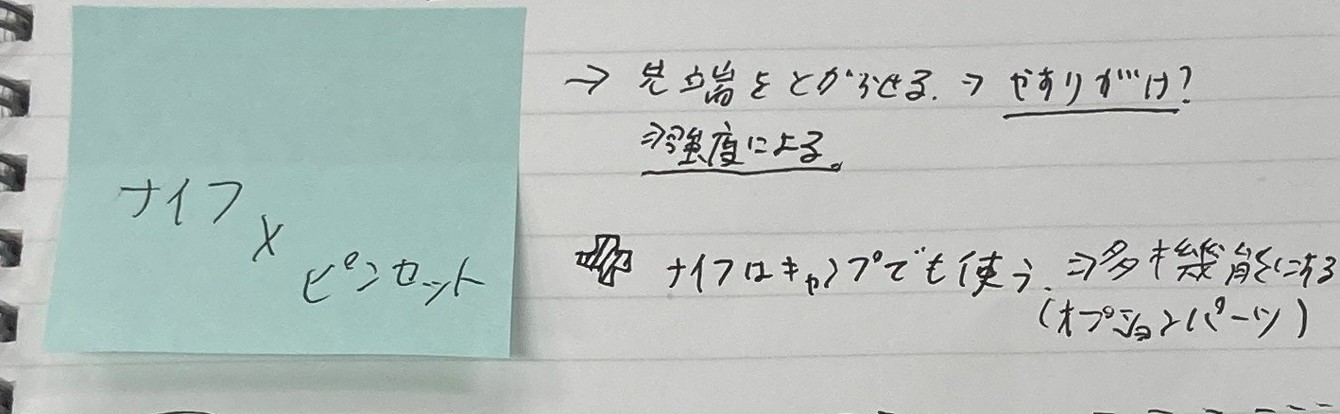 ナイフ
×
ピンセット
→ 先端をとがらせる. → やすりがけ?
⇒強度による。
ナイフはキャンプでも使う. ⇒多機能にする
(オプションパーツ)